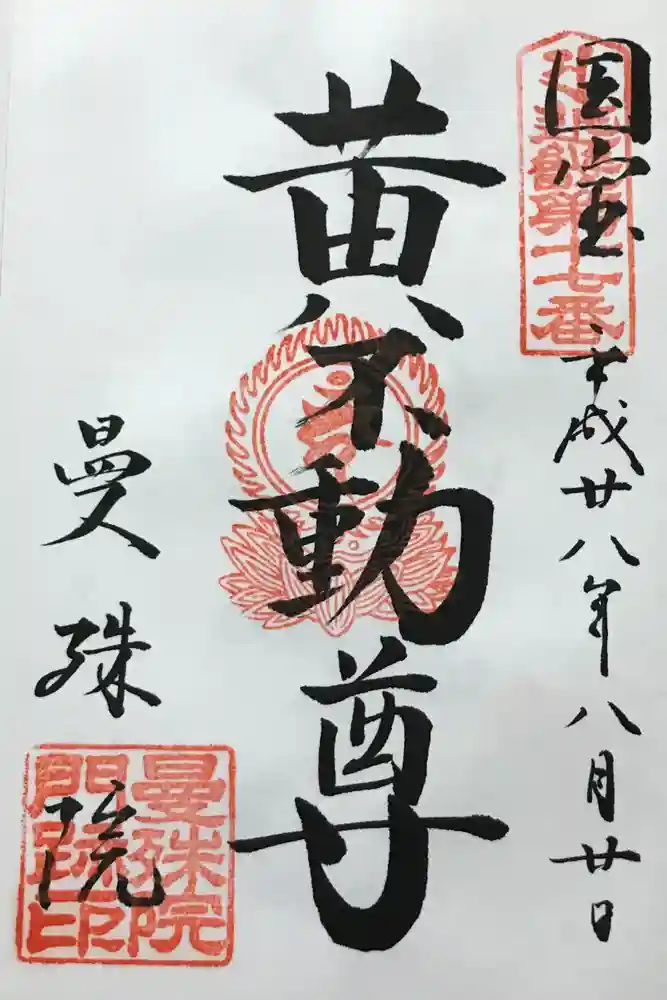 国宝
平成廿八年八月廿日
第十七番
黄不動尊
曼殊院
曼殊院
門跡印